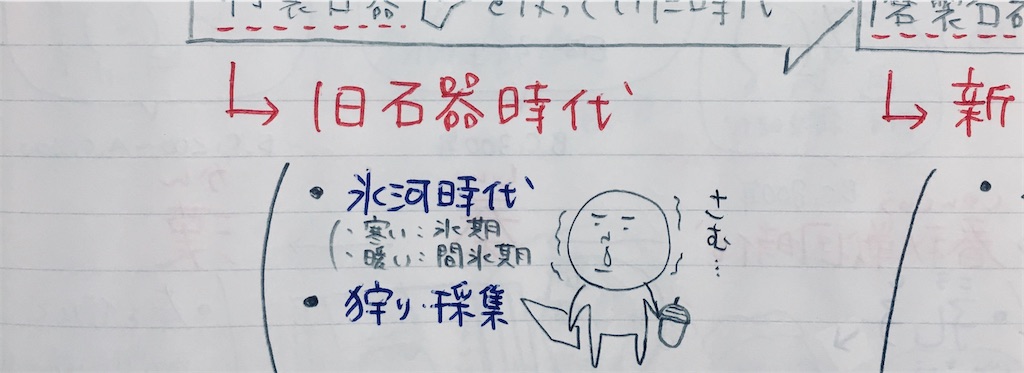 打製石器
時代
磨製石器
旧石器時代
新
・氷河時代
・寒い:氷期
・暖い:間氷期
・狩り・採集
さむ…